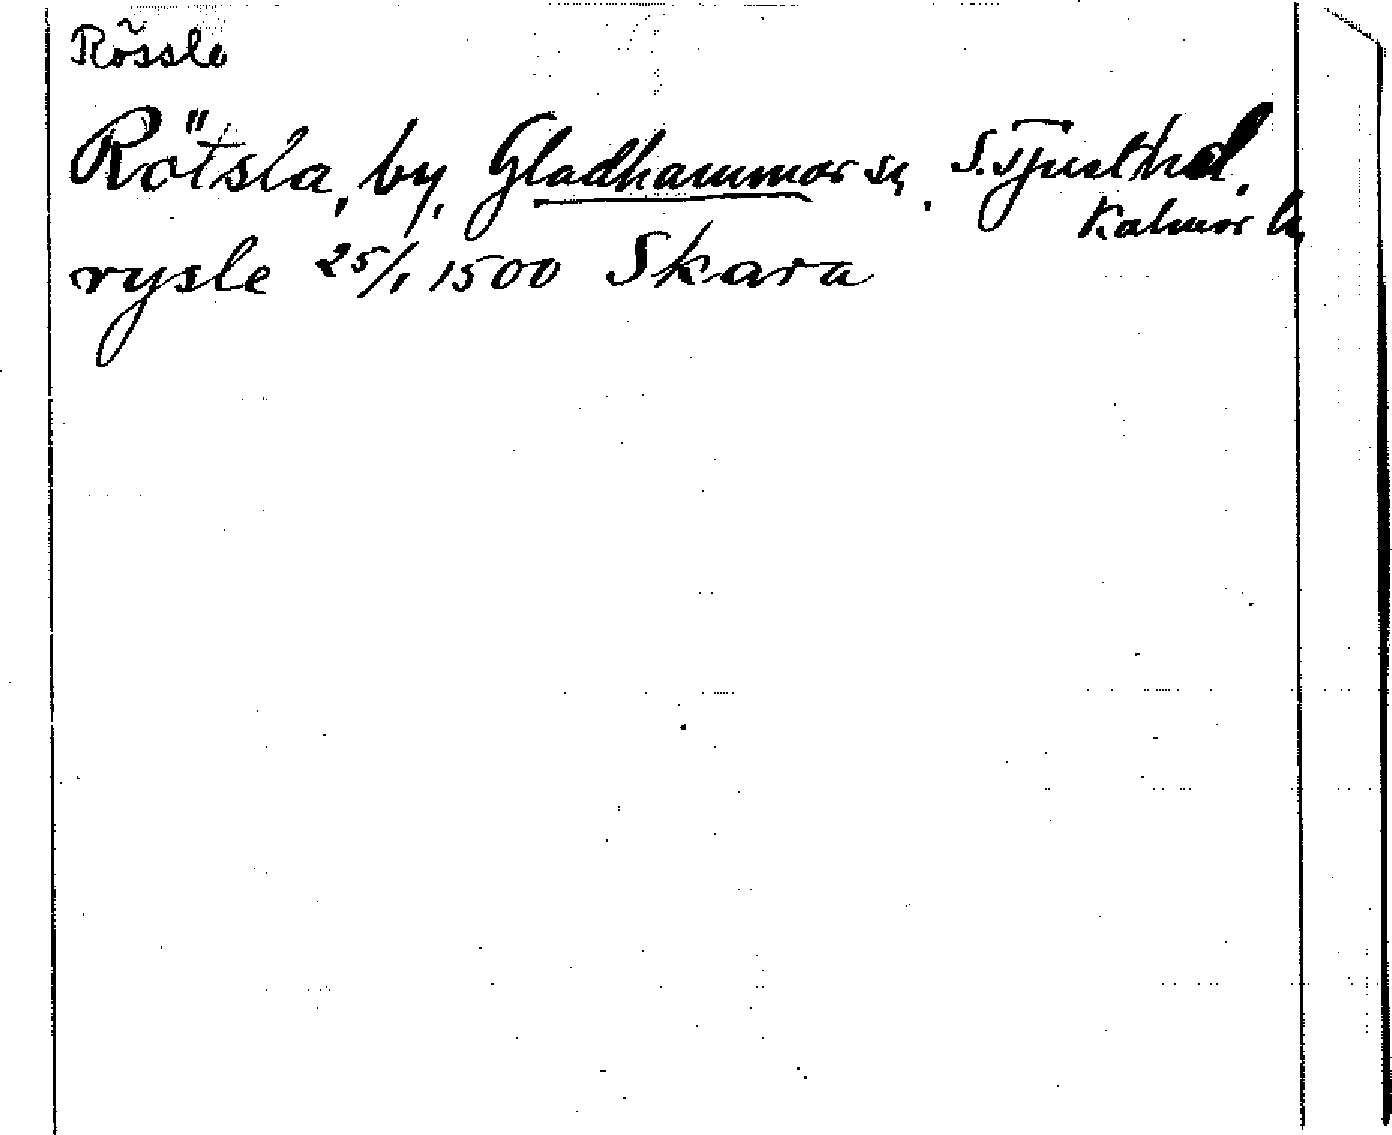 Rössle
Rötsla, by, Gladhammar sn, S. Tjust hd.
Kalmar l.
rysle 25/1 1500 Skara